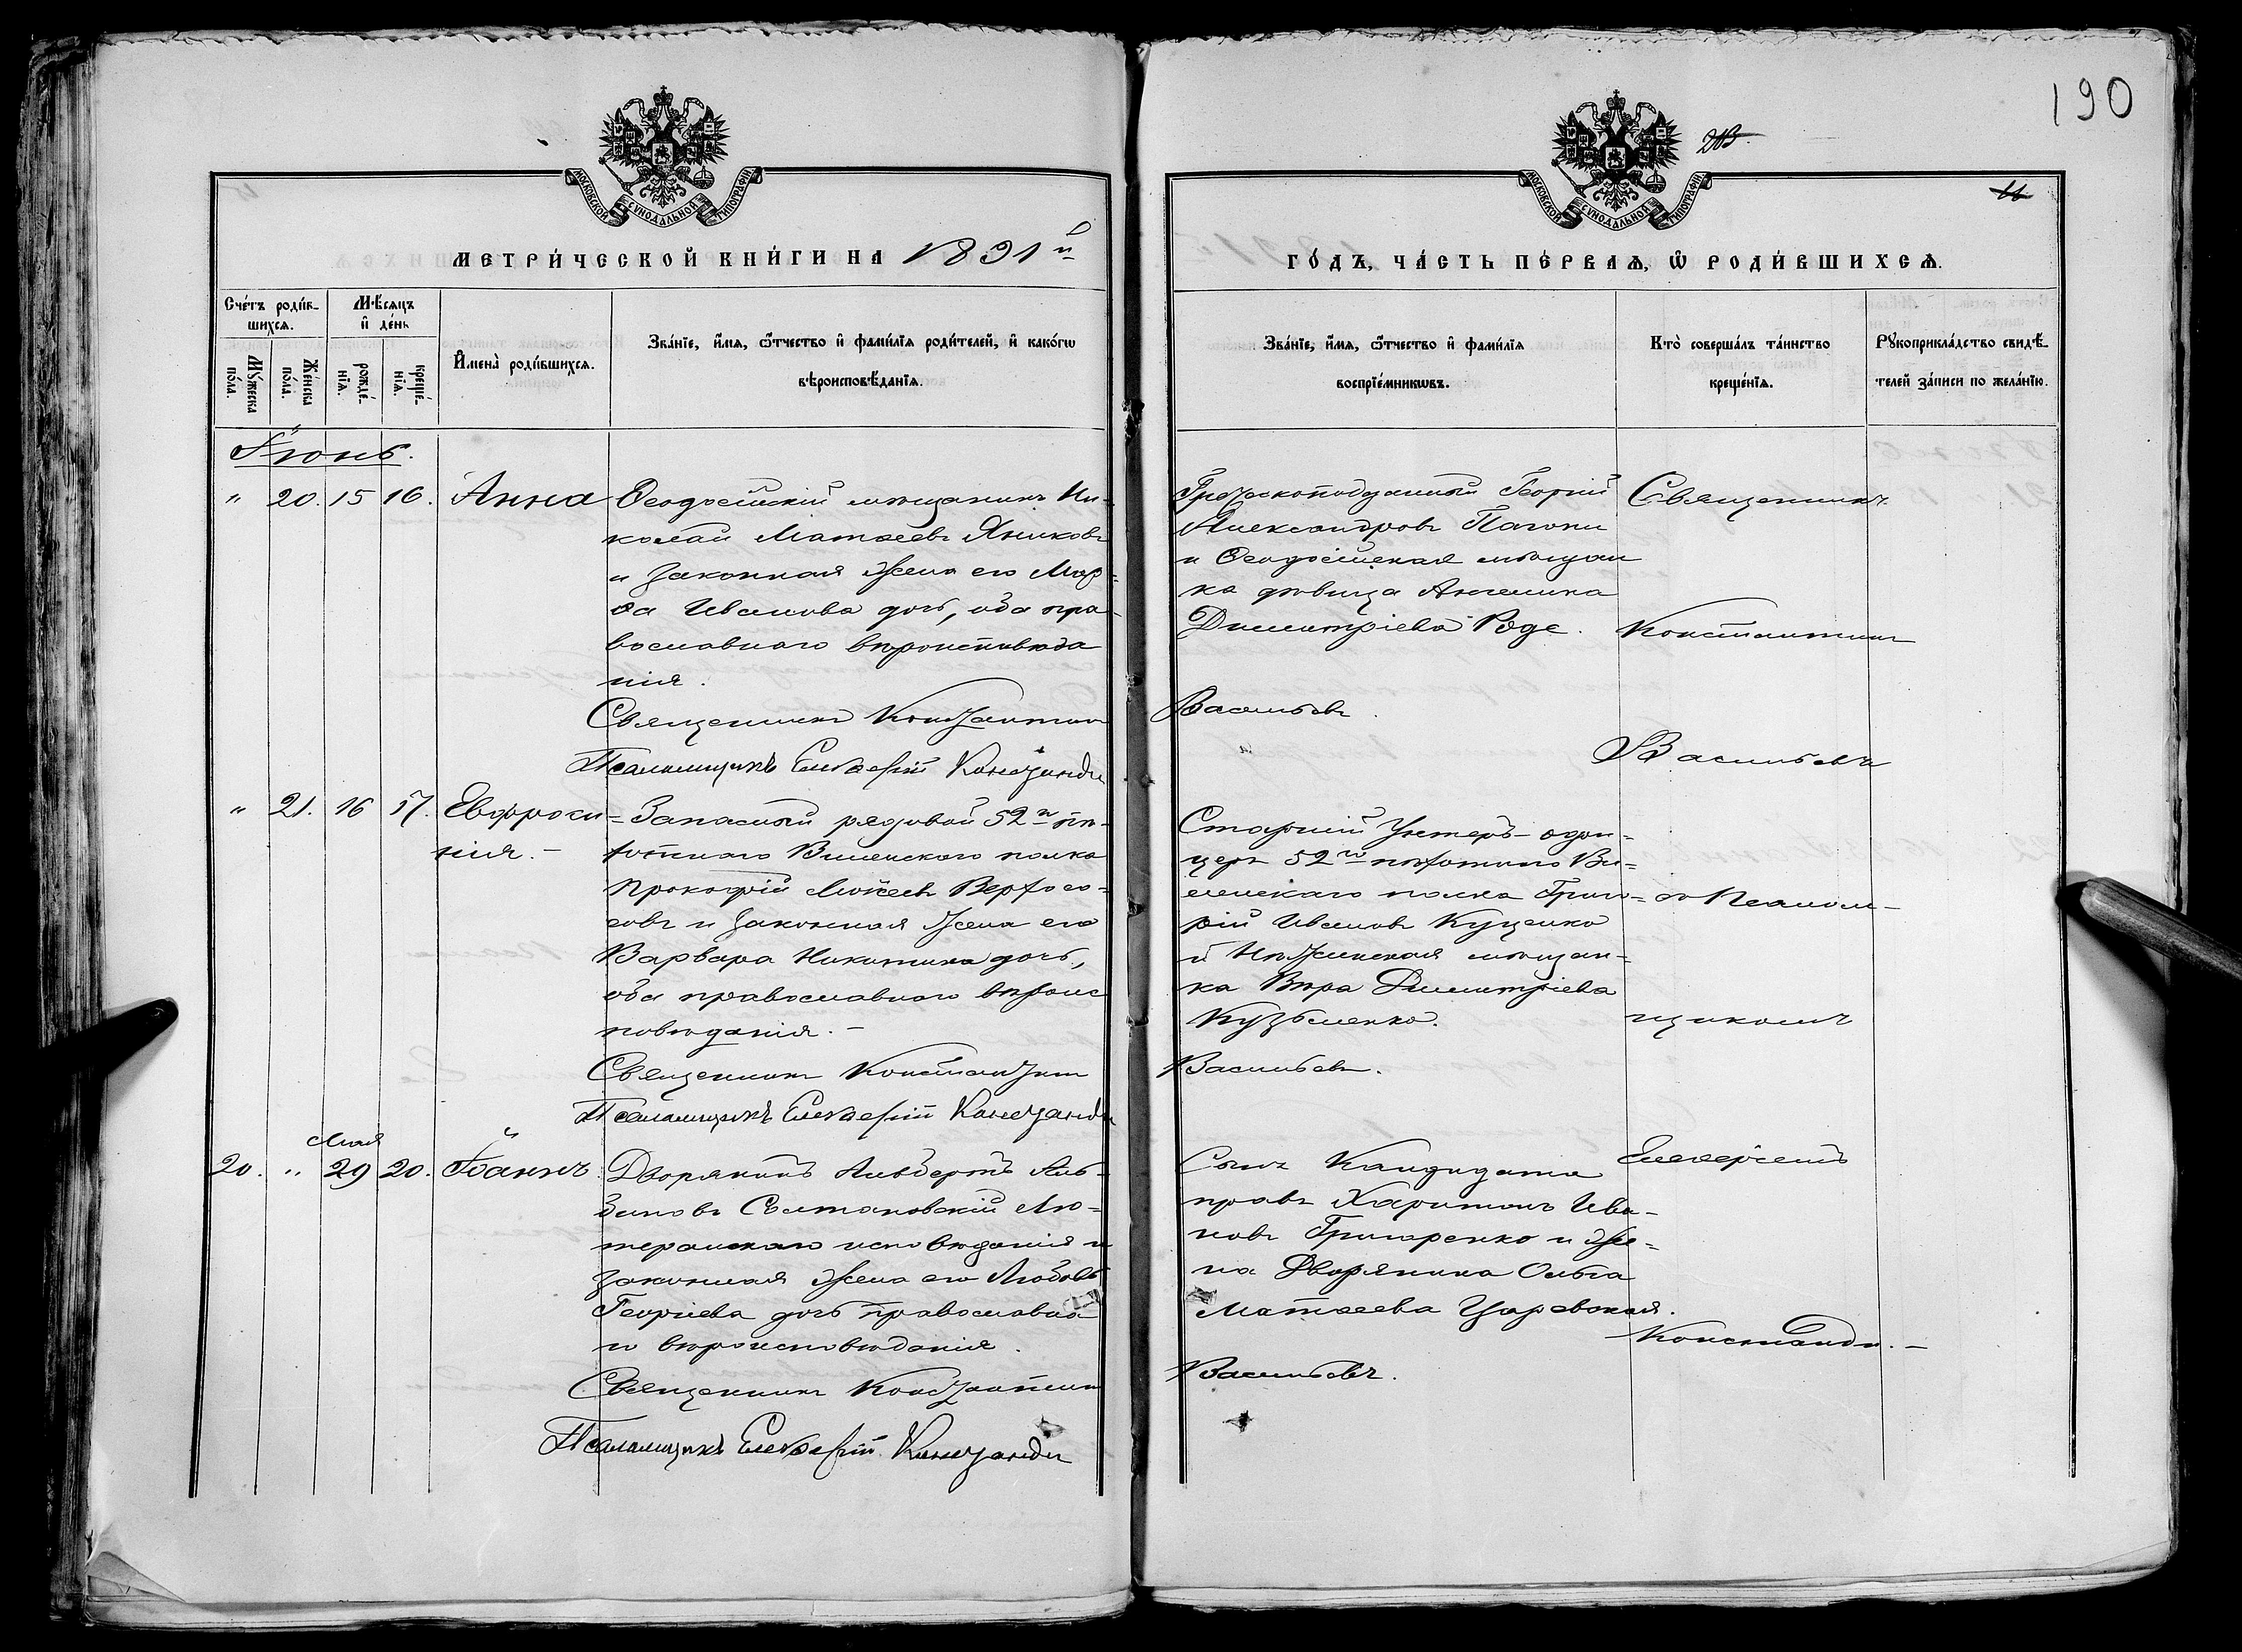 190
213.
11
МОСКОВСКОЙ СУНОДАЛЬНОЙ ТИПОГРАФІИ
МОСКОВСКОЙ СУНОДАЛЬНОЙ ТИПОГРАФІИ
МЕТРИ́ЧЕСКОЙ КНИ́ГИ НА 1891й
ГО́ДЪ, ЧА́СТЬ ПЕ́РВАѦ, Ѡ҆ РОДИ́ВШИХСѦ.
Сче́тъ роди́в-
шихсѧ.
Мꙋ́жеска по́ла.
Же́нска по́ла.
Мѣ́сѧцъ
и҆ де́нь
рожде́-
нїѧ.
креще́-
нїѧ.
И҆мена̀ роди́вшихсѧ.
Зва́нїе, и҆́мѧ, ѻ҆́тчество и҆ фами́лїѧ роди́телей, и҆ како́гѡ
вѣроисповѣ́данїѧ.
Зва́нїе, и҆́мѧ, ѻ҆́тчество и҆ фами́лїѧ
воспрїе́мникѡвъ.
Кто̀ соверша́лъ та́инство
креще́нїѧ.
Рꙋкоприкла́дство свидѣ́-
телей за́писи по жела́нїю.
Іюнь.
" 20. 15 16. Анна
Ѳеодосійскій мѣщанинъ Ни-
колай Матѳеевъ Яниковъ
и законная жена его Мар-
ѳа Иванова дочь, оба пра-
вославнаго вѣроисповѣда
нія.
Священникъ Константин
Псаломщикъ Елевѳерій Констанди
Греческоподданный Георгій
Александровъ
и Ѳеодосійская мѣщан
ка дѣвица Ангелина
Димитріева Роде.
Васильевъ.
Священникъ
Константинъ
Васильевъ
" 21. 16 17. Евфроси-
нія.-
Запасный рядовой 52го пѣ-
хотнаго Виленскаго полка
Прокофій Моисеевъ
и законная жена его
Варвара Никитина дочь,
оба православнаго вѣроис
повѣданія.-
Священникъ Константин
Псаломщикъ Елевѳерій Констанди
Старшій Унтеръ-офи-
церъ 52го пѣхотнаго Ви-
ленскаго полка Григо-
рій Ивановъ Куценко
и Нѣжинская мѣщан-
ка Вѣра Димитріева
Кузьменко.
Васильевъ.
съ Псалом-
щикомъ
Мая
20. " 29 20. Іоаннъ.
Дворянинъ Альбертъ Аль-
биновъ Солтановскій Лю-
теранскаго исповѣданія и
законная жена его Любовь
Георгіева дочь православна-
го вѣроисповѣданія.
Священникъ Константин
Псаломщикъ Елевѳерій Констанди
Сынъ Кандидата
правъ Харитонъ Ива-
новъ Григоренко и же-
на Дворянина Ольга
Матѳеева Царевская.
Васильевъ.
Елевѳеріемъ
Констанди.-